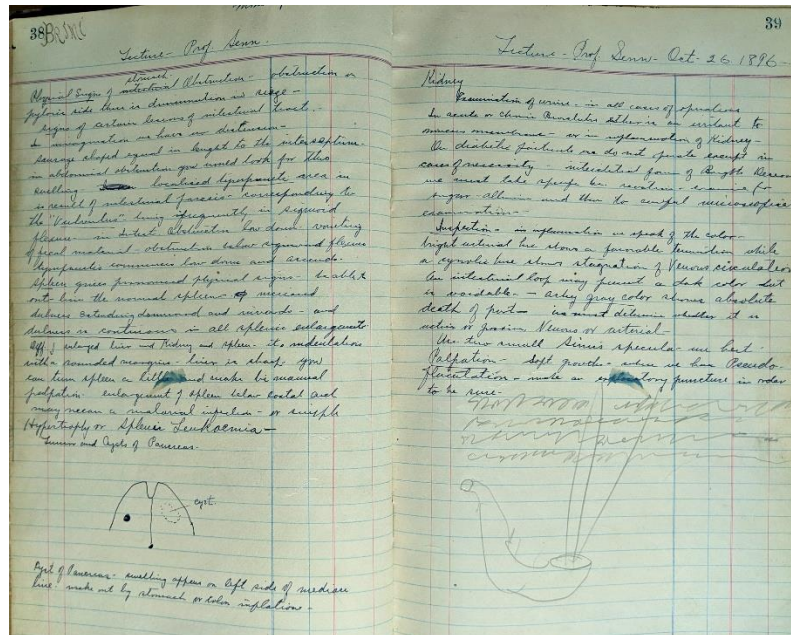 38
Lecture - Prof Senn.
stomach
Physical Signs of intestinal Obstruction - obstruction on
pyloric side there is diminution in
signs of certain lesions of intestinal tract.
In invagination we have no distension -
sausage shaped equal in lenght to the
in abdominal obstruction you would look for this
swelling. localised tympanitic area in
is result of intestinal paresis - corresponding to
the "Volvulus" being frequently in sigmoid
flexure - in Intest. Obstruction low down vomiting
of fecal material - obstruction below sigmoid flexure
tympanites commences low down and ascends.
Spleen gives pronounced physical signs - be able to
out line the normal spleen of
dulness extending downward and inwards - and
dulness is continuous in all splenic enlargements
Diff. of enlarged liver and Kidney and spleen - its indentations
with a rounded margins - liver is sharp you
can turn spleen a little and make bi manual
palpation - enlargement of spleen below costal arch
may mean a malarial infection - or simple
Hypertrophy or Splenic Leukaemia -
Tumors and Cysts of Pancreas.
cyst.
Cyst of Pancreas - swelling appears on left side of median
line. make out by stomach or colon inflation -
39
Lecture - Prof Senn - Oct - 26 1896 -
Kidney
Examination of urine - in all cases of operations
In acute or chronic Ether is an irritant to
mucous membrane - or in inflammation of Kidney -
On diabetic patients we do not operate except in
cases of necessity - interstitial form of Brights Disease
we must take specific examine for
sugar - albumin and then to careful microscopical
examination -
Inspection - in inflammation we speak of the color -
bright arterial hue shows a favorable termination while
a cyanotic hue shows stagnation of Venous circulation
An intestinal loop may present a dark color but
is - ashy gray color shows absolute
death of part - we must determine whether it is
active or passive Venous or arterial -
Use two small Sims specula - are best -
Palpation - Soft growth - when we have Pseudo-
fluctuation - make an exploratory puncture in order
to be sure -